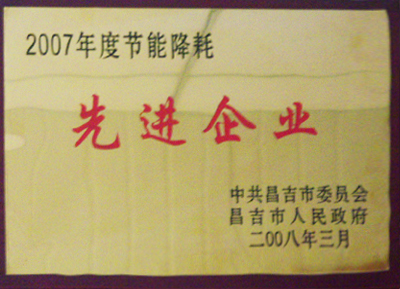 2007年度节能降耗
先进企业
中共昌吉市委员会
昌吉市人民政府
二00八年三月